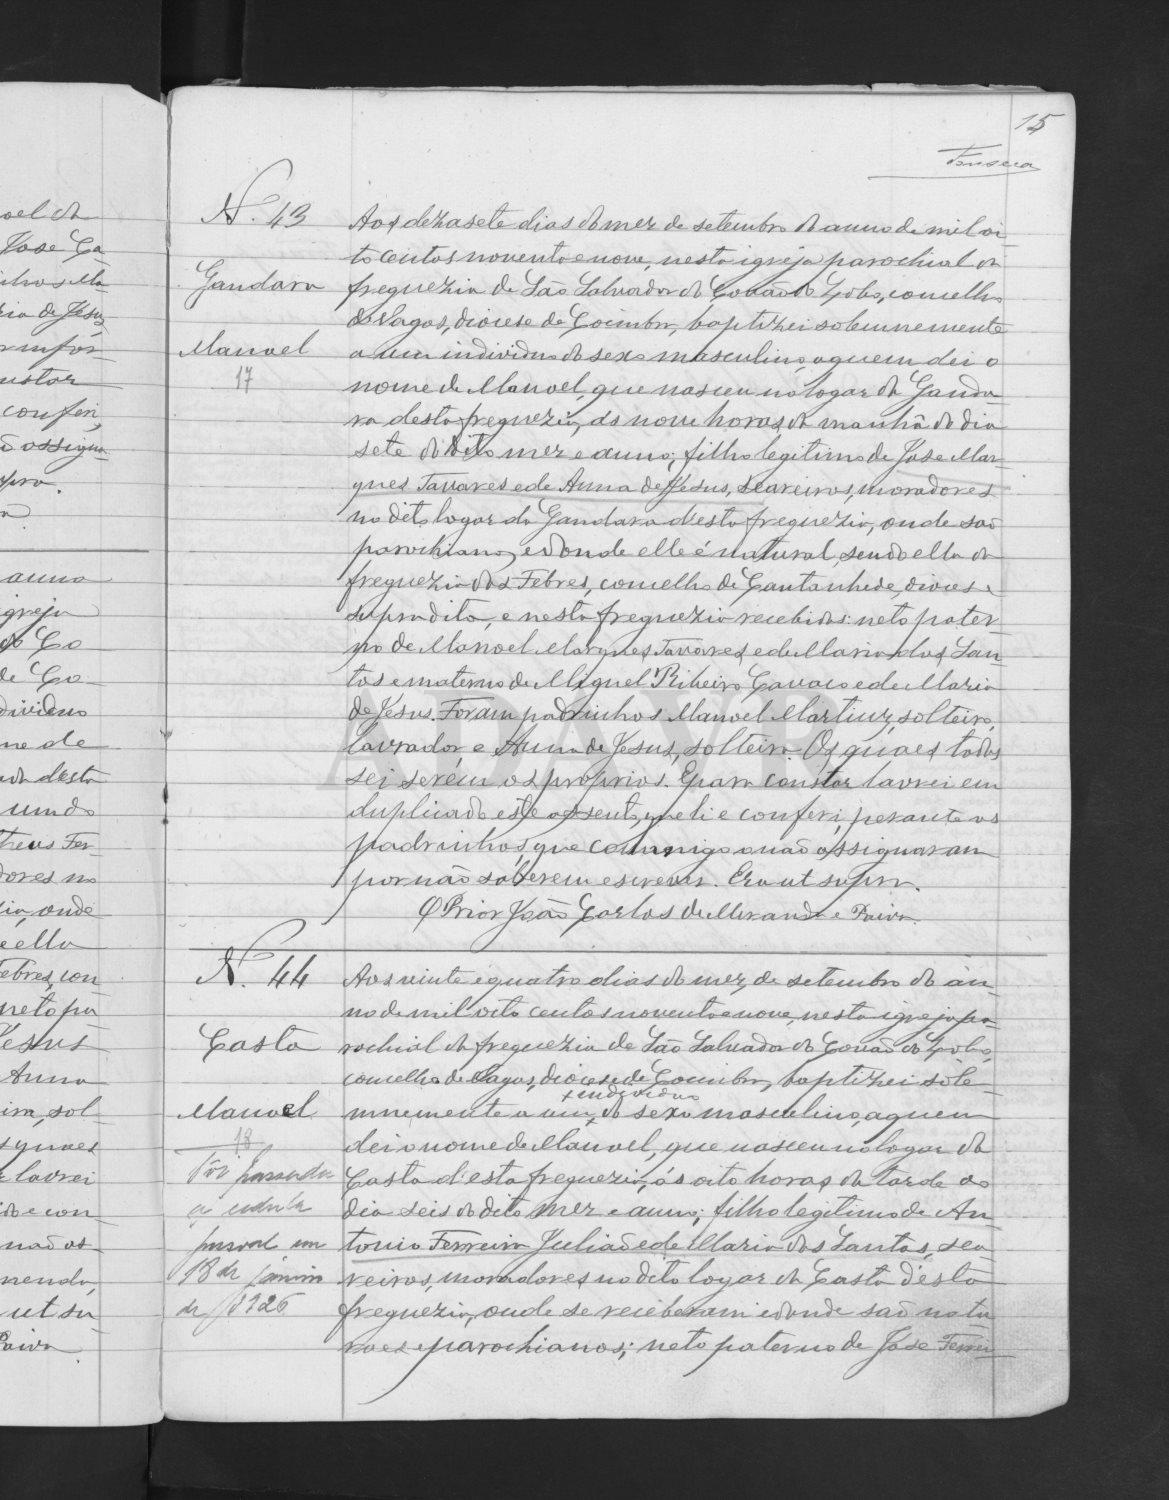 15
Fonseca
N. 43
Gandara
Manoel
17
Aos dezasete dias do mez de setembro do anno de mil oi-
to centos noventa e nove, nesta igreja parochial da
freguezia de São Salvador do Covão do Lobo, concelho
de Vagos, diocese de Coimbra, baptizei solemnemente
a um individuo do sexo masculino, a quem dei o
nome de Manoel, que nasceu no logar da Ganda-
ra desta freguezia, ás nove horas da manhã do dia
sete do dito mez e anno; filho legitimo de Jose Mar-
ques Tavares e de Anna de Jesus, seareiros, moradores
no dito logar da Gandara d'esta freguezia, onde são
parochianos, e d'onde elle é natural, sendo ella da
freguezia das Febres, concelho de Cantanhede, diocese
supradita, e nesta freguezia recebidos: neto pater-
no de Manoel Marques Tavares e de Maria dos San-
tos e materno de Miguel Ribeiro Cavaco e de Maria
de Jesus. Foram padrinhos Manoel Martins, solteiro,
lavrador, e Anna de Jesus, solteira. Os quaes todos
sei serem os proprios. E para constar lavrei em
duplicado este assento, que li e conferi, perante os
padrinhos, que commigo o não assignaram
por não saberem escrever. Era ut supra.
O Prior João Carlos de Miranda e Paiva.
N. 44
Casta
Manoel
18
Foi passada
a cedula
pessoal em
18 de janeiro
de 1926
Aos vinte e quatro dias do mez de setembro do an-
no de mil oito centos noventa e nove, nesta igreja pa-
rochial da freguezia de São Salvador do Covão do Lobo,
concelho de Vagos, diocese de Coimbra, baptizei sole-
+ individuo
mnemente a um + do sexo masculino, a quem
dei o nome de Manoel, que nasceu no logar da
Casta d'esta freguezia, ás oito horas da tarde do
dia seis do dito mez e anno; filho legitimo de An-
tonio Ferreira Julião e de Maria dos Santos, sea-
reiros, moradores no dito logar da Casta d'esta
freguezia, onde se receberam e d'onde são natu-
raes e parochianos; neto paterno de Jose Ferrei-